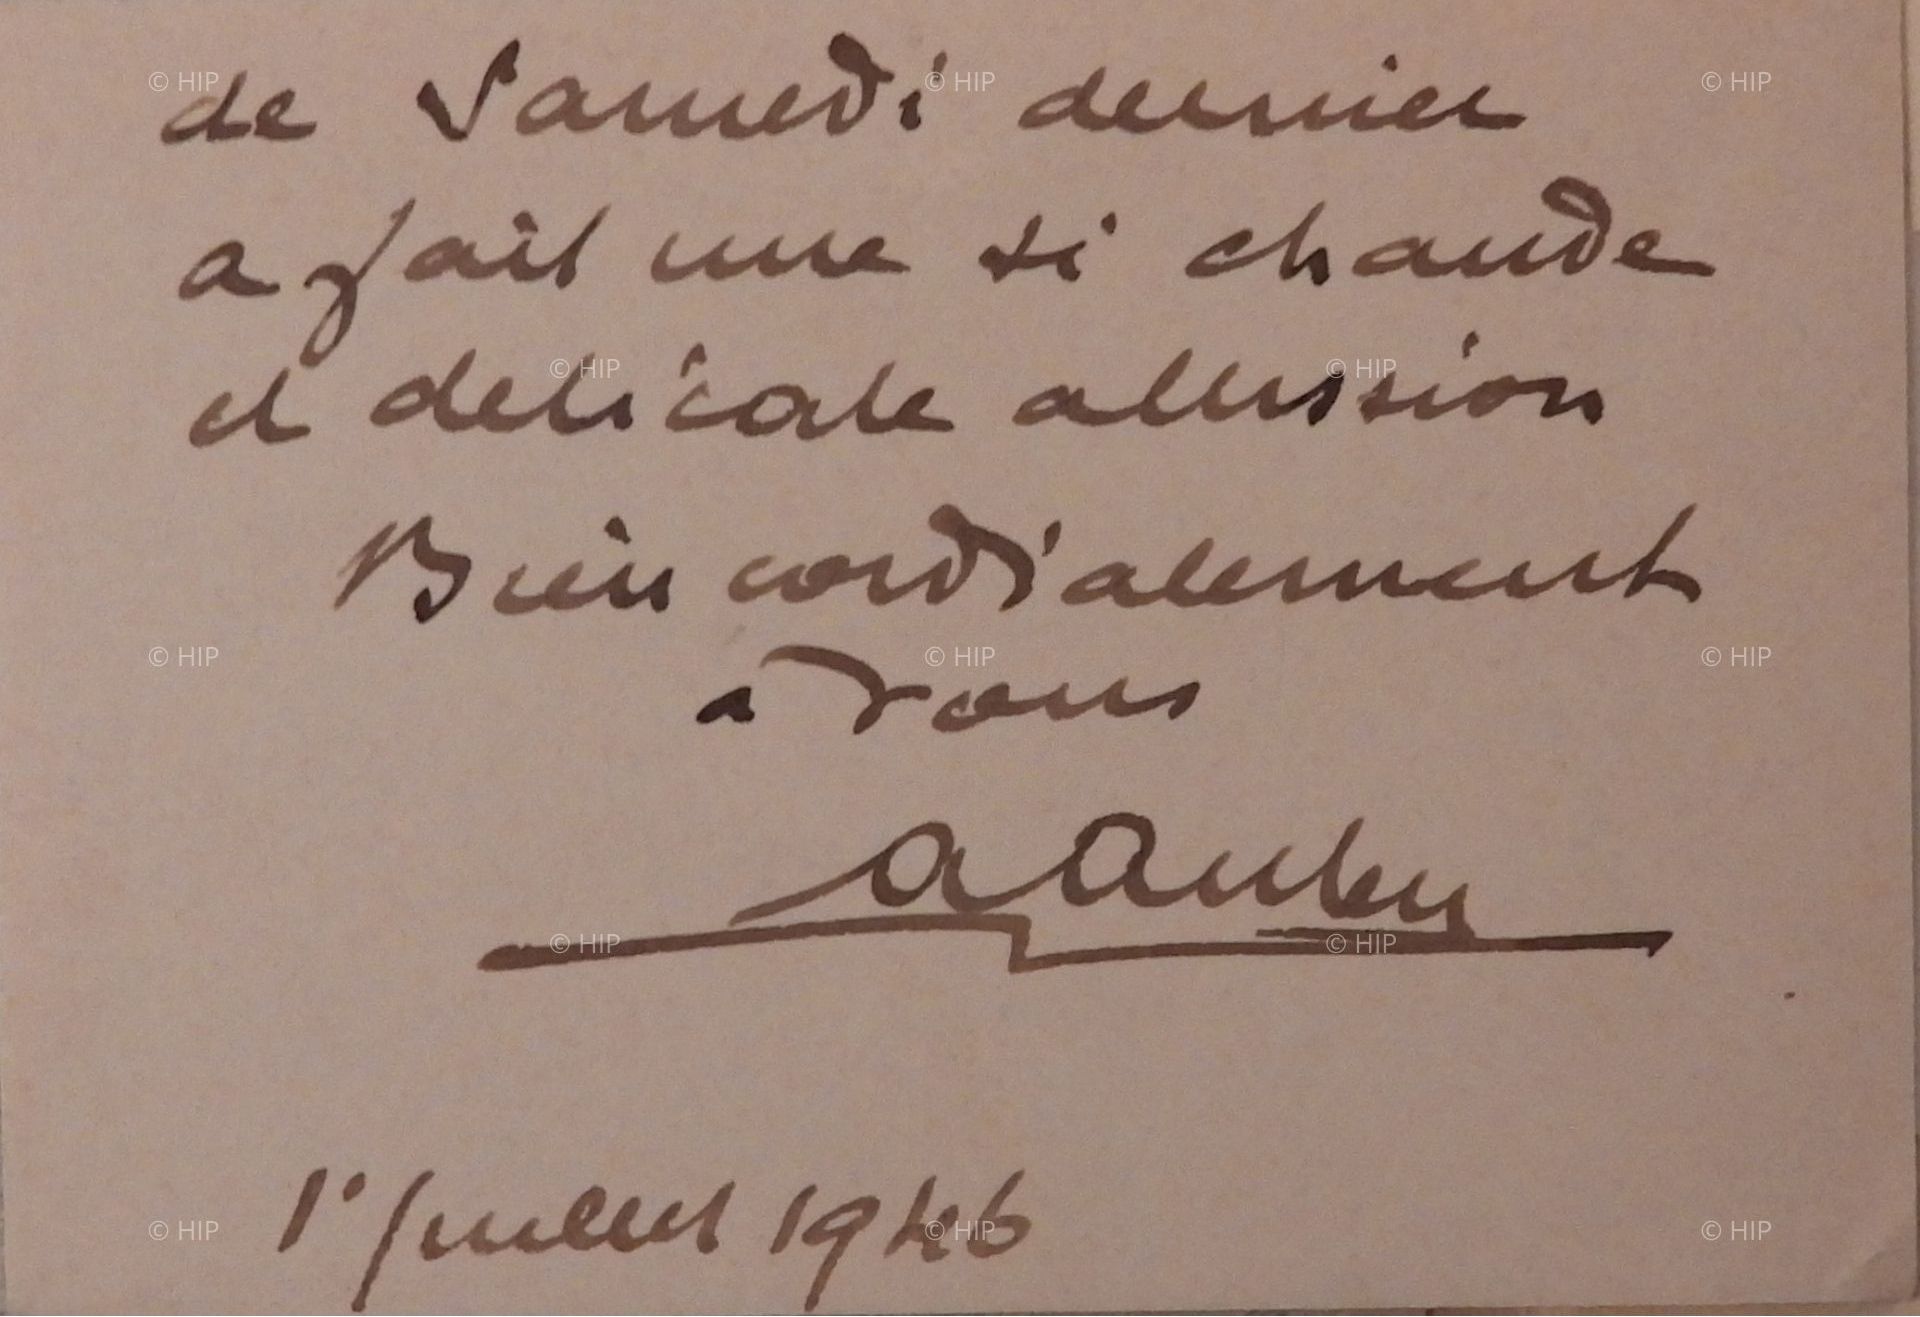 de Samedi dernier
a fait une si chaude
et delicate allusion
Bien cordialement
a vous
1er Juillet 1946
© HIP © HIP © HIP
© HIP © HIP
© HIP © HIP © HIP
© HIP © HIP
© HIP © HIP © HIP